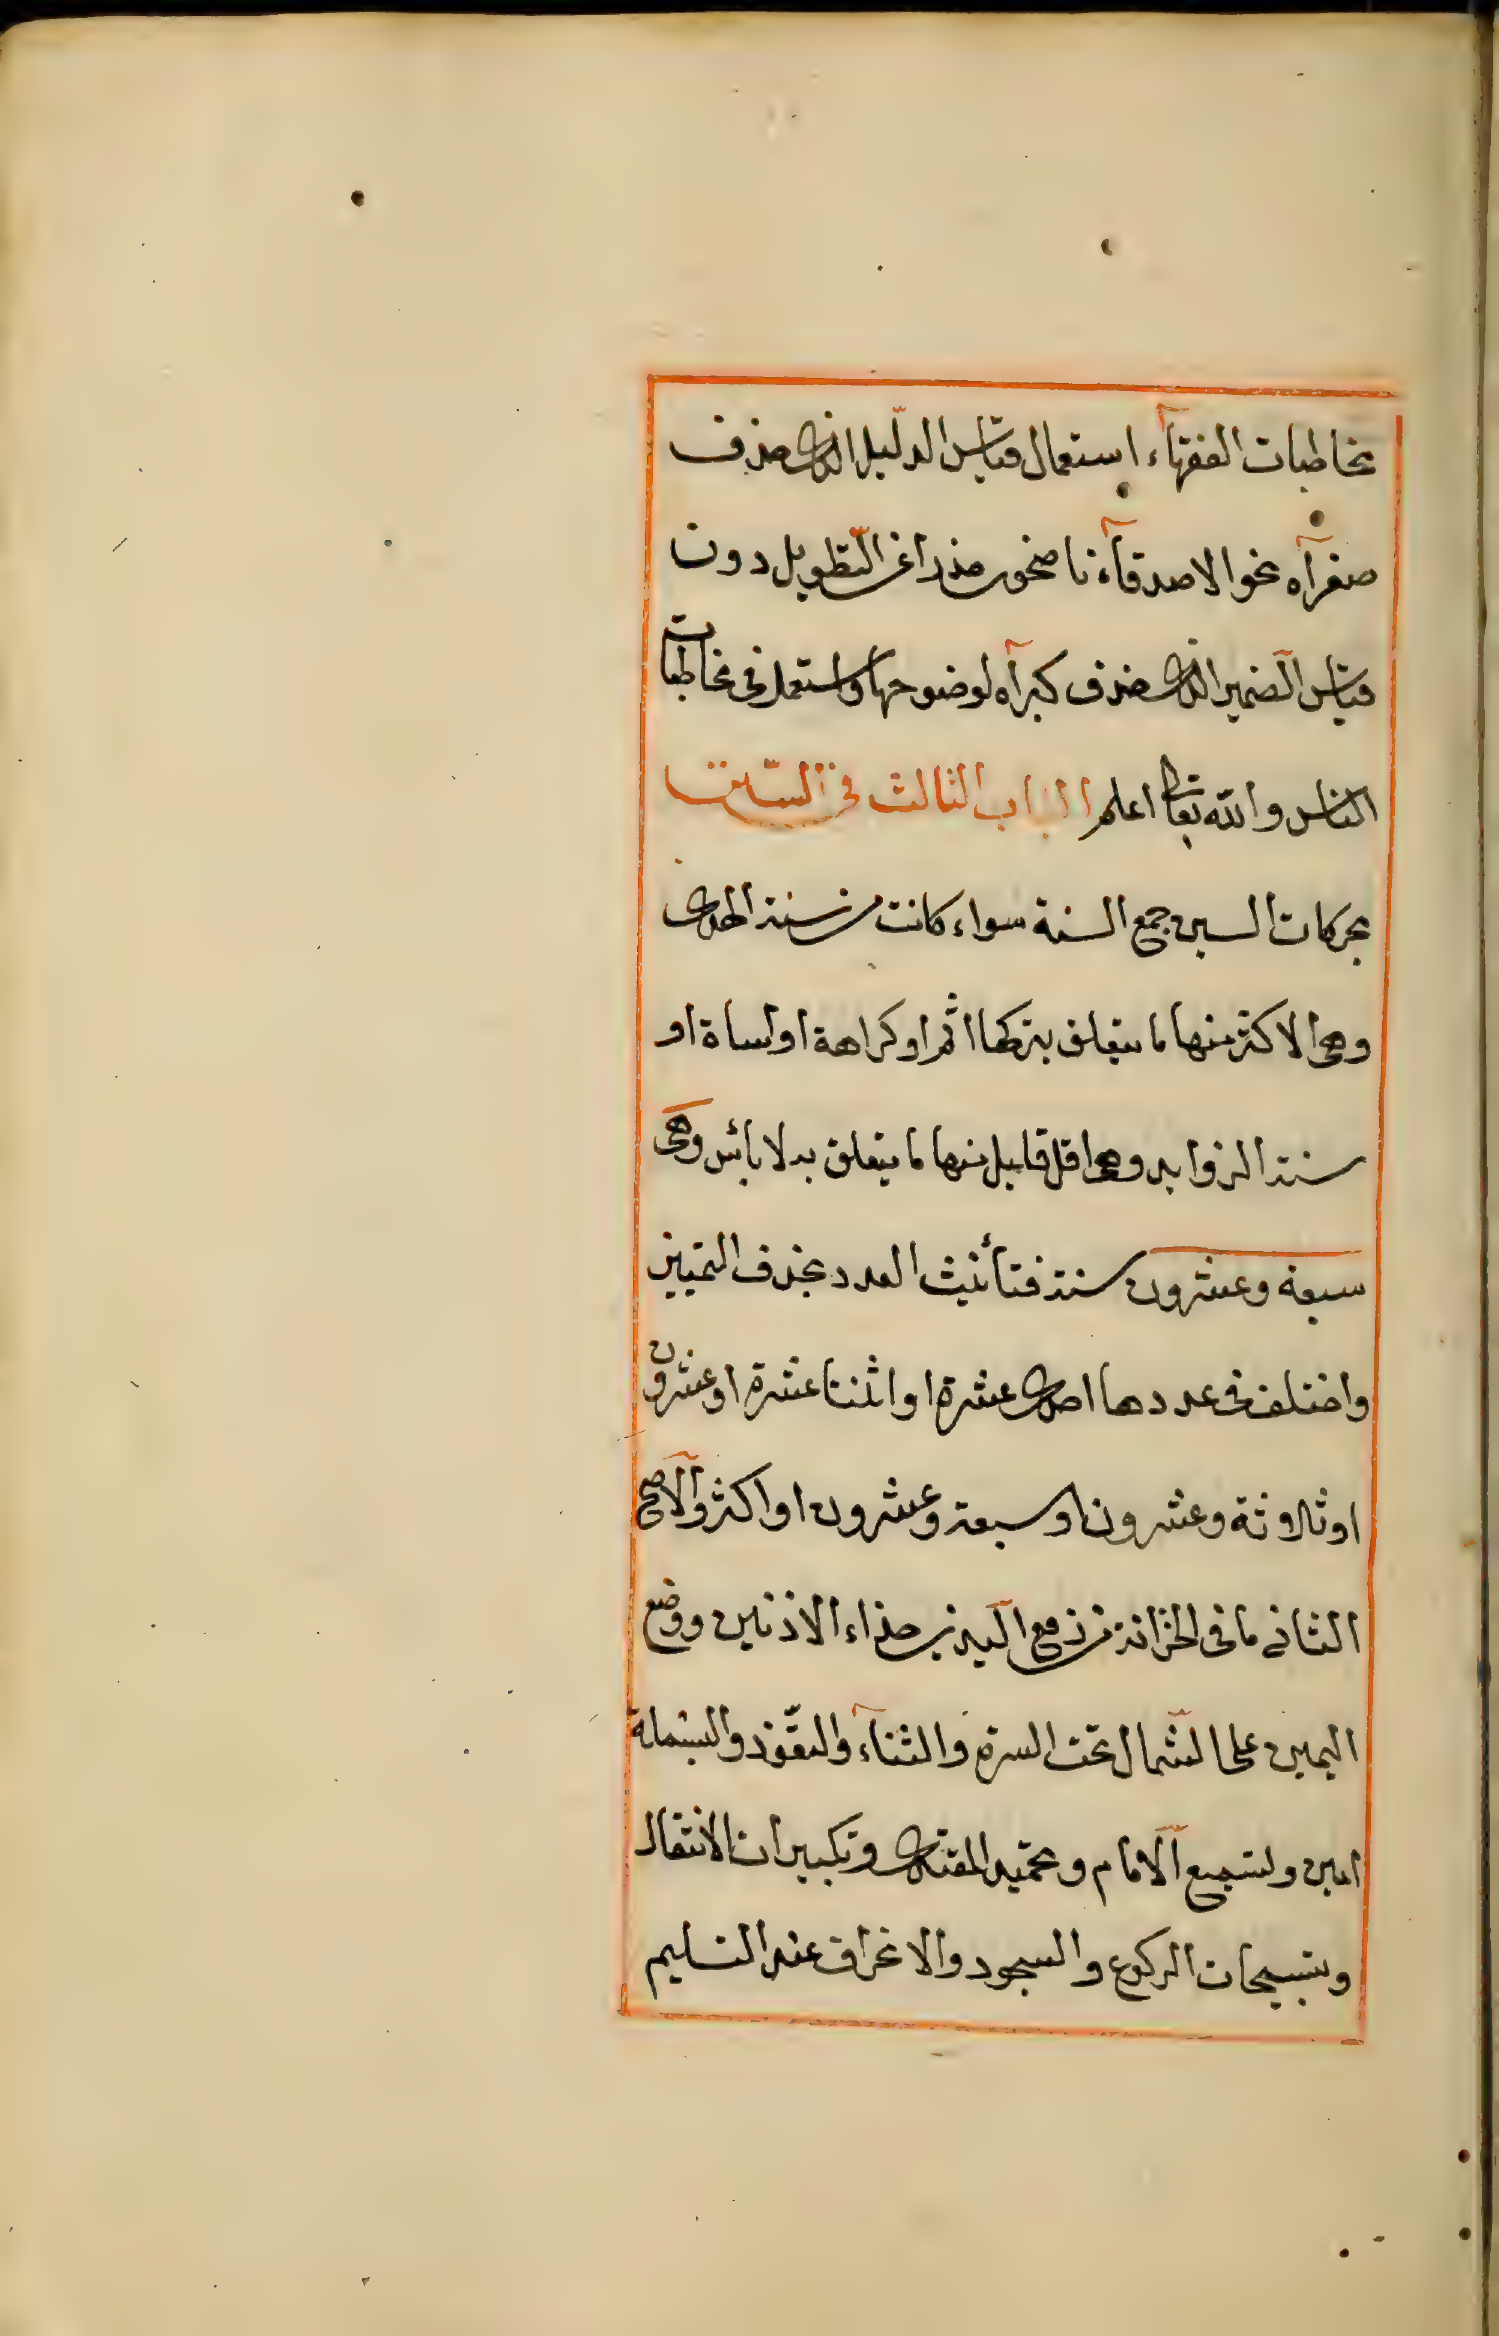 مخاطبات الفقهآء استعمال قياس الدليل الذى حذف
صغرآه نحو الاصدقآء ناصحون حذرا عن التطويل دون
قياس الضمير الذى حذف كبرآه لوضوحها واستعمل فى مخاطبات
الناس والله تعالى اعلم الباب الثالث فى السنن
بحركات السين جمع السنة سواء كانت من سنة الهدى
وهى الاكثر منها ما يتعلق بتركها اثم او كراهة او اساة او
سنة الزوايد وهى اقل قليل منها ما يتعلق به لا بأس وهى
سبعة وعشرون سنة فتأنيث العدد بحذف التمييز
واختلف فى عددها احدى عشرة او اثنتا عشرة او عشرون
او ثلاثة وعشرون او سبعة وعشرون او اكثر والاصح
الثانى ما فى الخزانة من رفع اليدين حذاء الاذنين ووضع
اليمين على الشمال تحت السرة والثنآء والتعوذ والبسملة
امين وتسميع الامام وتحميد المقتدى وتكبيرات الانتقال
وتسبيحات الركوع والسجود والانحراف عند التسليم